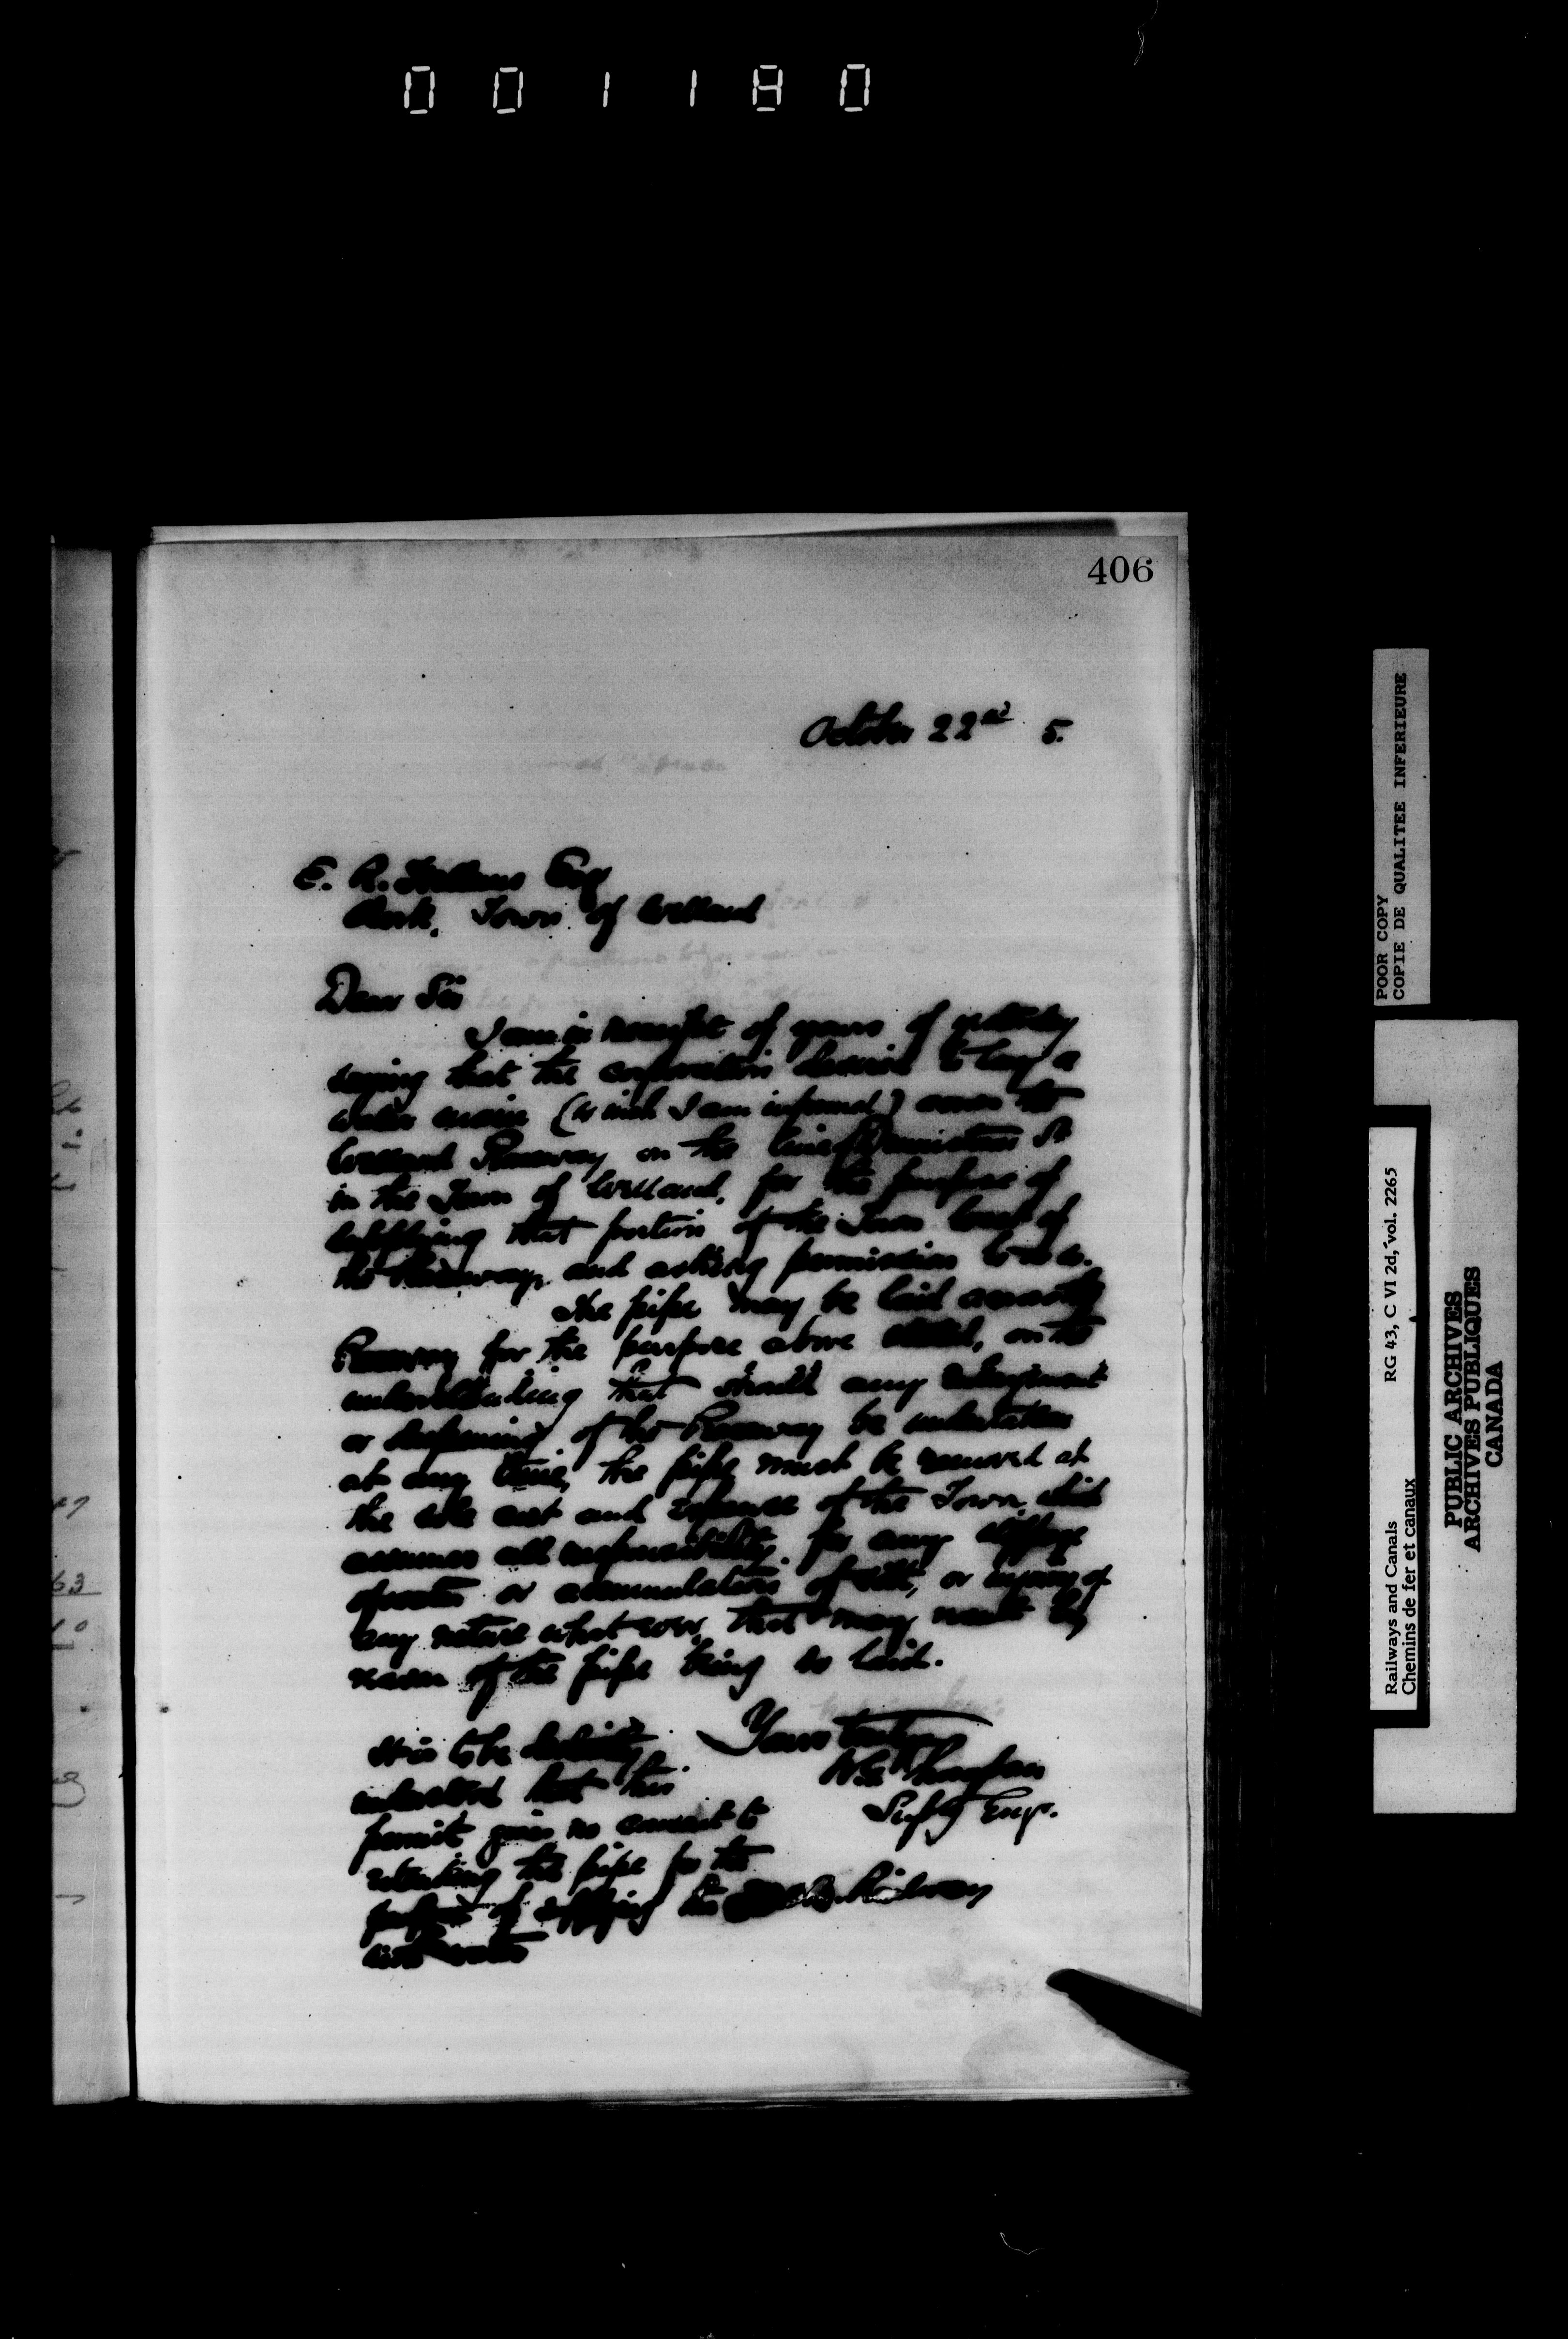 001180
406
October 22nd 5.
E. R. Hellems Esq
Clerk, Town of Welland
Dear Sir
I am in receipt of yours of yesterday
saying that the corporation desires to lay a
water main (6 inch I am informed) across the
Welland Raceway on the line of Denistoun St
in the Town of Welland, for the purpose of
supplying that portion of the Town West of
the Raceway, and asking permission to do so.
The pipe may be laid across the
Raceway for the purpose above stated, on the
understanding that should any enlargement
or deepening of the Raceway be undertaken
at any time, the pipe must be removed at
the sole cost and expense of the Town, which
assumes all responsibility for any stoppage
or accumulation of silt, or injury of
any nature whatsoever that may result by
reason of the pipe being so laid.
It is to be distinctly
understood that this
permit gives no consent to
extending the pipe for the
purpose of supplying the Railway
with water
Yours truly
W G Thompson
Suptg Engr.
POOR COPY
COPIE DE QUALITEE INFERIEURE
Railways and Canals RG 43, C VI 2d, vol. 2265
Chemins de fer et canaux
PUBLIC ARCHIVES
ARCHIVES PUBLIQUES
CANADA